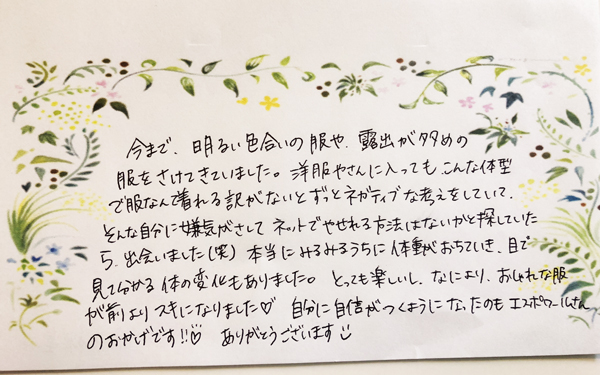 今まで、明るい色合いの服や、露出が多めの
服をさけてきていました。洋服やさんに入っても こんな体型
で服なんて着れる訳がないとずっとネガティブな考えをしていて、
そんな自分に嫌気がさして ネットでやせれる方法はないかと探していた
ら、出会いました(笑) 本当にみるみるうちに体重がおちていき、目で
見て分かる体の変化もありました。 とっても楽しいし、なにより、おしゃれな服
が前より スキになりました♡ 自分に自信がつくようになったのも エスポワールさん
のおかげです!!♡ ありがとうございます